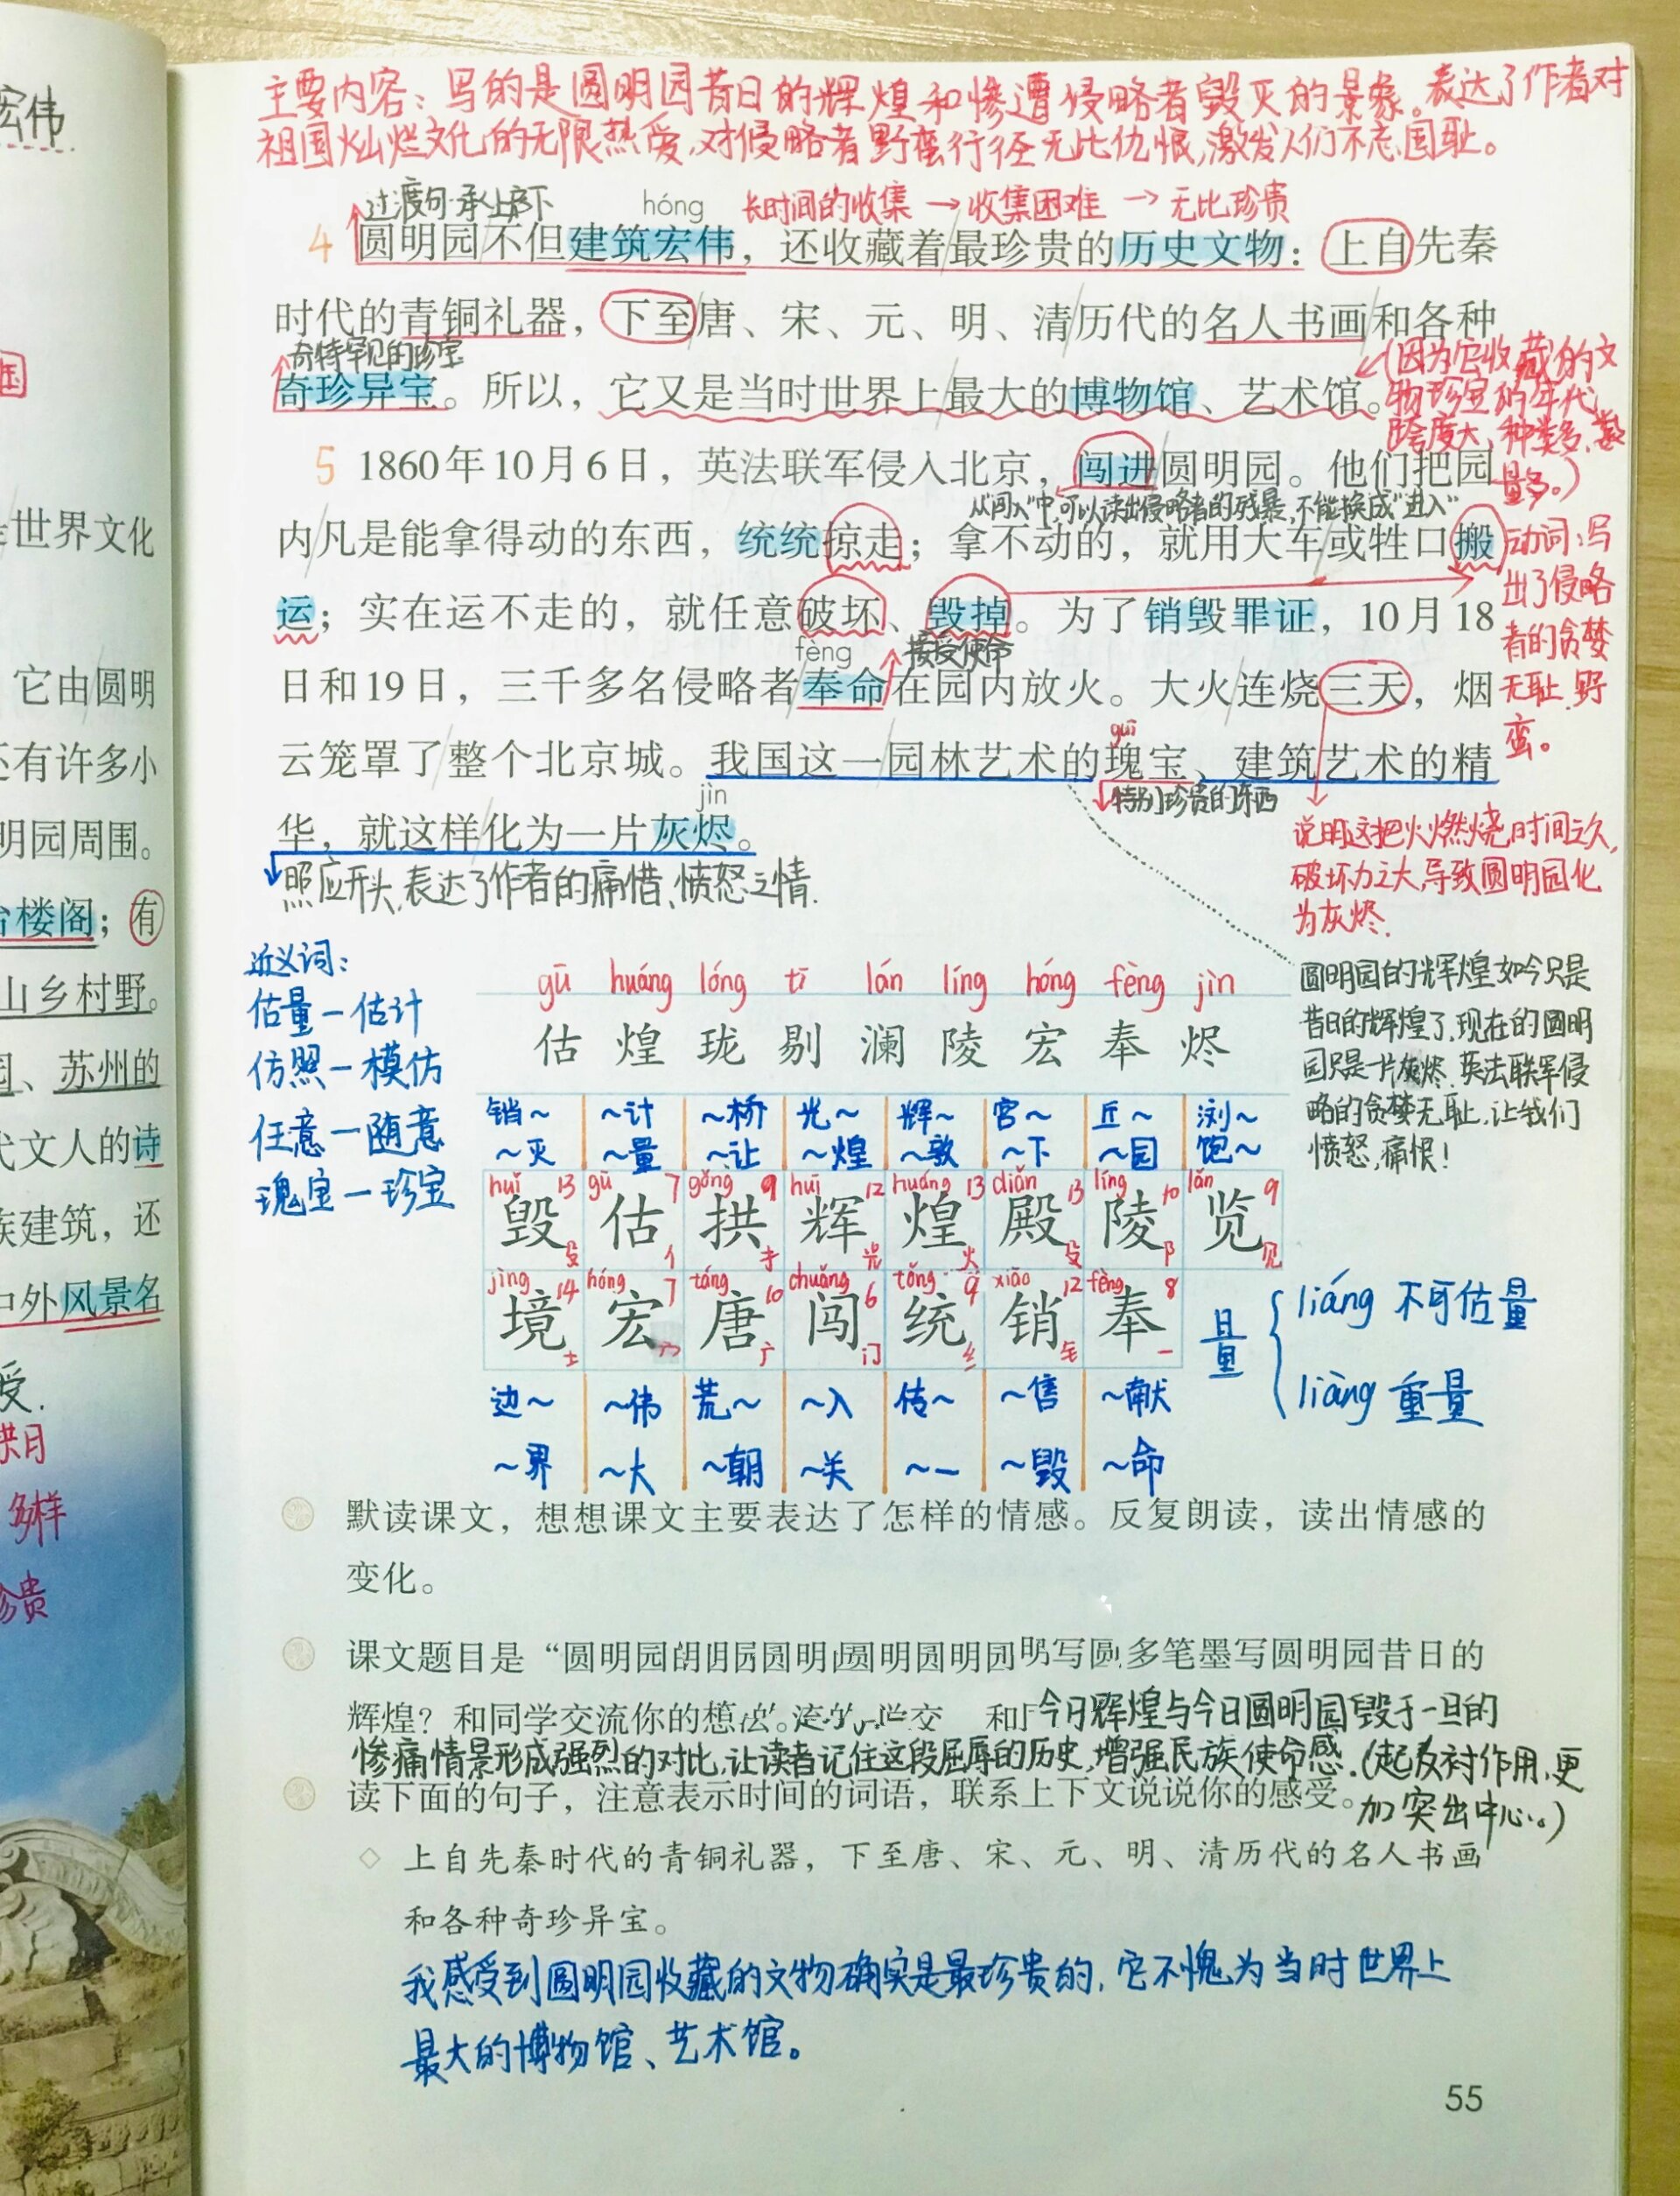 宏伟
国
世界文化
它由圆明
还有许多小
明园周围。
台楼阁；有
山乡村野。
苏州的
代文人的诗
族建筑，还
中外风景名
受.
拱月
多样
珍贵
主要内容：写的是圆明园昔日的辉煌和惨遭侵略者毁灭的景象。表达了作者对
祖国灿烂文化的无限热爱,对侵略者野蛮行径无比仇恨,激发人们不忘国耻。
过渡句·承上启下 hóng 长时间的收集→收集困难→无比珍贵
4 圆明园不但建筑宏伟，还收藏着最珍贵的历史文物：上自先秦
时代的青铜礼器，下至唐、宋、元、明、清历代的名人书画和各种
奇特罕见的珍宝
奇珍异宝。所以，它又是当时世界上最大的博物馆、艺术馆。
(因为它收藏的文
物珍宝的年代
跨度大,种类多,数
量多。)
5 1860年10月6日，英法联军侵入北京，闯进圆明园。他们把园
从“闯入”中,可以读出侵略者的残暴,不能换成“进入”
内凡是能拿得动的东西，统统掠走；拿不动的，就用大车或牲口搬
运；实在运不走的，就任意破坏、毁掉。为了销毁罪证，10月18
动词:写
出了侵略
者的贪婪
无耻.野
蛮。
fèng 接受使命
日和19日，三千多名侵略者奉命在园内放火。大火连烧三天，烟
guī
云笼罩了整个北京城。我国这一园林艺术的瑰宝、建筑艺术的精
jìn 特别珍贵的东西
华，就这样化为一片灰烬。
照应开头,表达了作者的痛惜、愤怒之情.
说明这把火燃烧时间之久,
破坏力之大,导致圆明园化
为灰烬.
圆明园的辉煌如今只是
昔日的辉煌了,现在的圆明
园只是一片灰烬.英法联军侵
略的贪婪无耻,让我们
愤怒,痛恨!
近义词:
估量—估计
仿照—模仿
任意—随意
瑰宝—珍宝
gū huáng lóng tī lán líng hóng fèng jìn
估 煌 珑 剔 澜 陵 宏 奉 烬
销~ ~计 ~桥 光~ 辉~ 宫~ 丘~ 浏~
~灭 ~量 ~让 ~煌 ~敦 ~下 ~园 饱~
huǐ 13 gū 7 gǒng 9 huī 12 huáng 13 diàn 13 líng 10 lǎn 9
毁 估 拱 辉 煌 殿 陵 览
殳 亻 扌 光 火 殳 阝 见
jìng 14 hóng 7 táng 10 chuǎng 6 tǒng 9 xiāo 12 fèng 8
境 宏 唐 闯 统 销 奉
土 宀 广 门 纟 钅 一
边~ ~伟 荒~ ~入 传~ ~售 ~献
~界 ~大 ~朝 ~关 ~一 ~毁 ~命
量
liáng 不可估量
liàng 重量
默读课文，想想课文主要表达了怎样的情感。反复朗读，读出情感的
变化。
课文题目是“圆明园 多笔墨写圆明园昔日的
辉煌？和同学交流你的想法。 今日辉煌与今日圆明园毁于一旦的
惨痛情景形成强烈的对比,让读者记住这段屈辱的历史,增强民族使命感.(起反衬作用,更
加突出中心。)
读下面的句子，注意表示时间的词语，联系上下文说说你的感受。
上自先秦时代的青铜礼器，下至唐、宋、元、明、清历代的名人书画
和各种奇珍异宝。
我感受到圆明园收藏的文物确实是最珍贵的,它不愧为当时世界上
最大的博物馆、艺术馆。
55